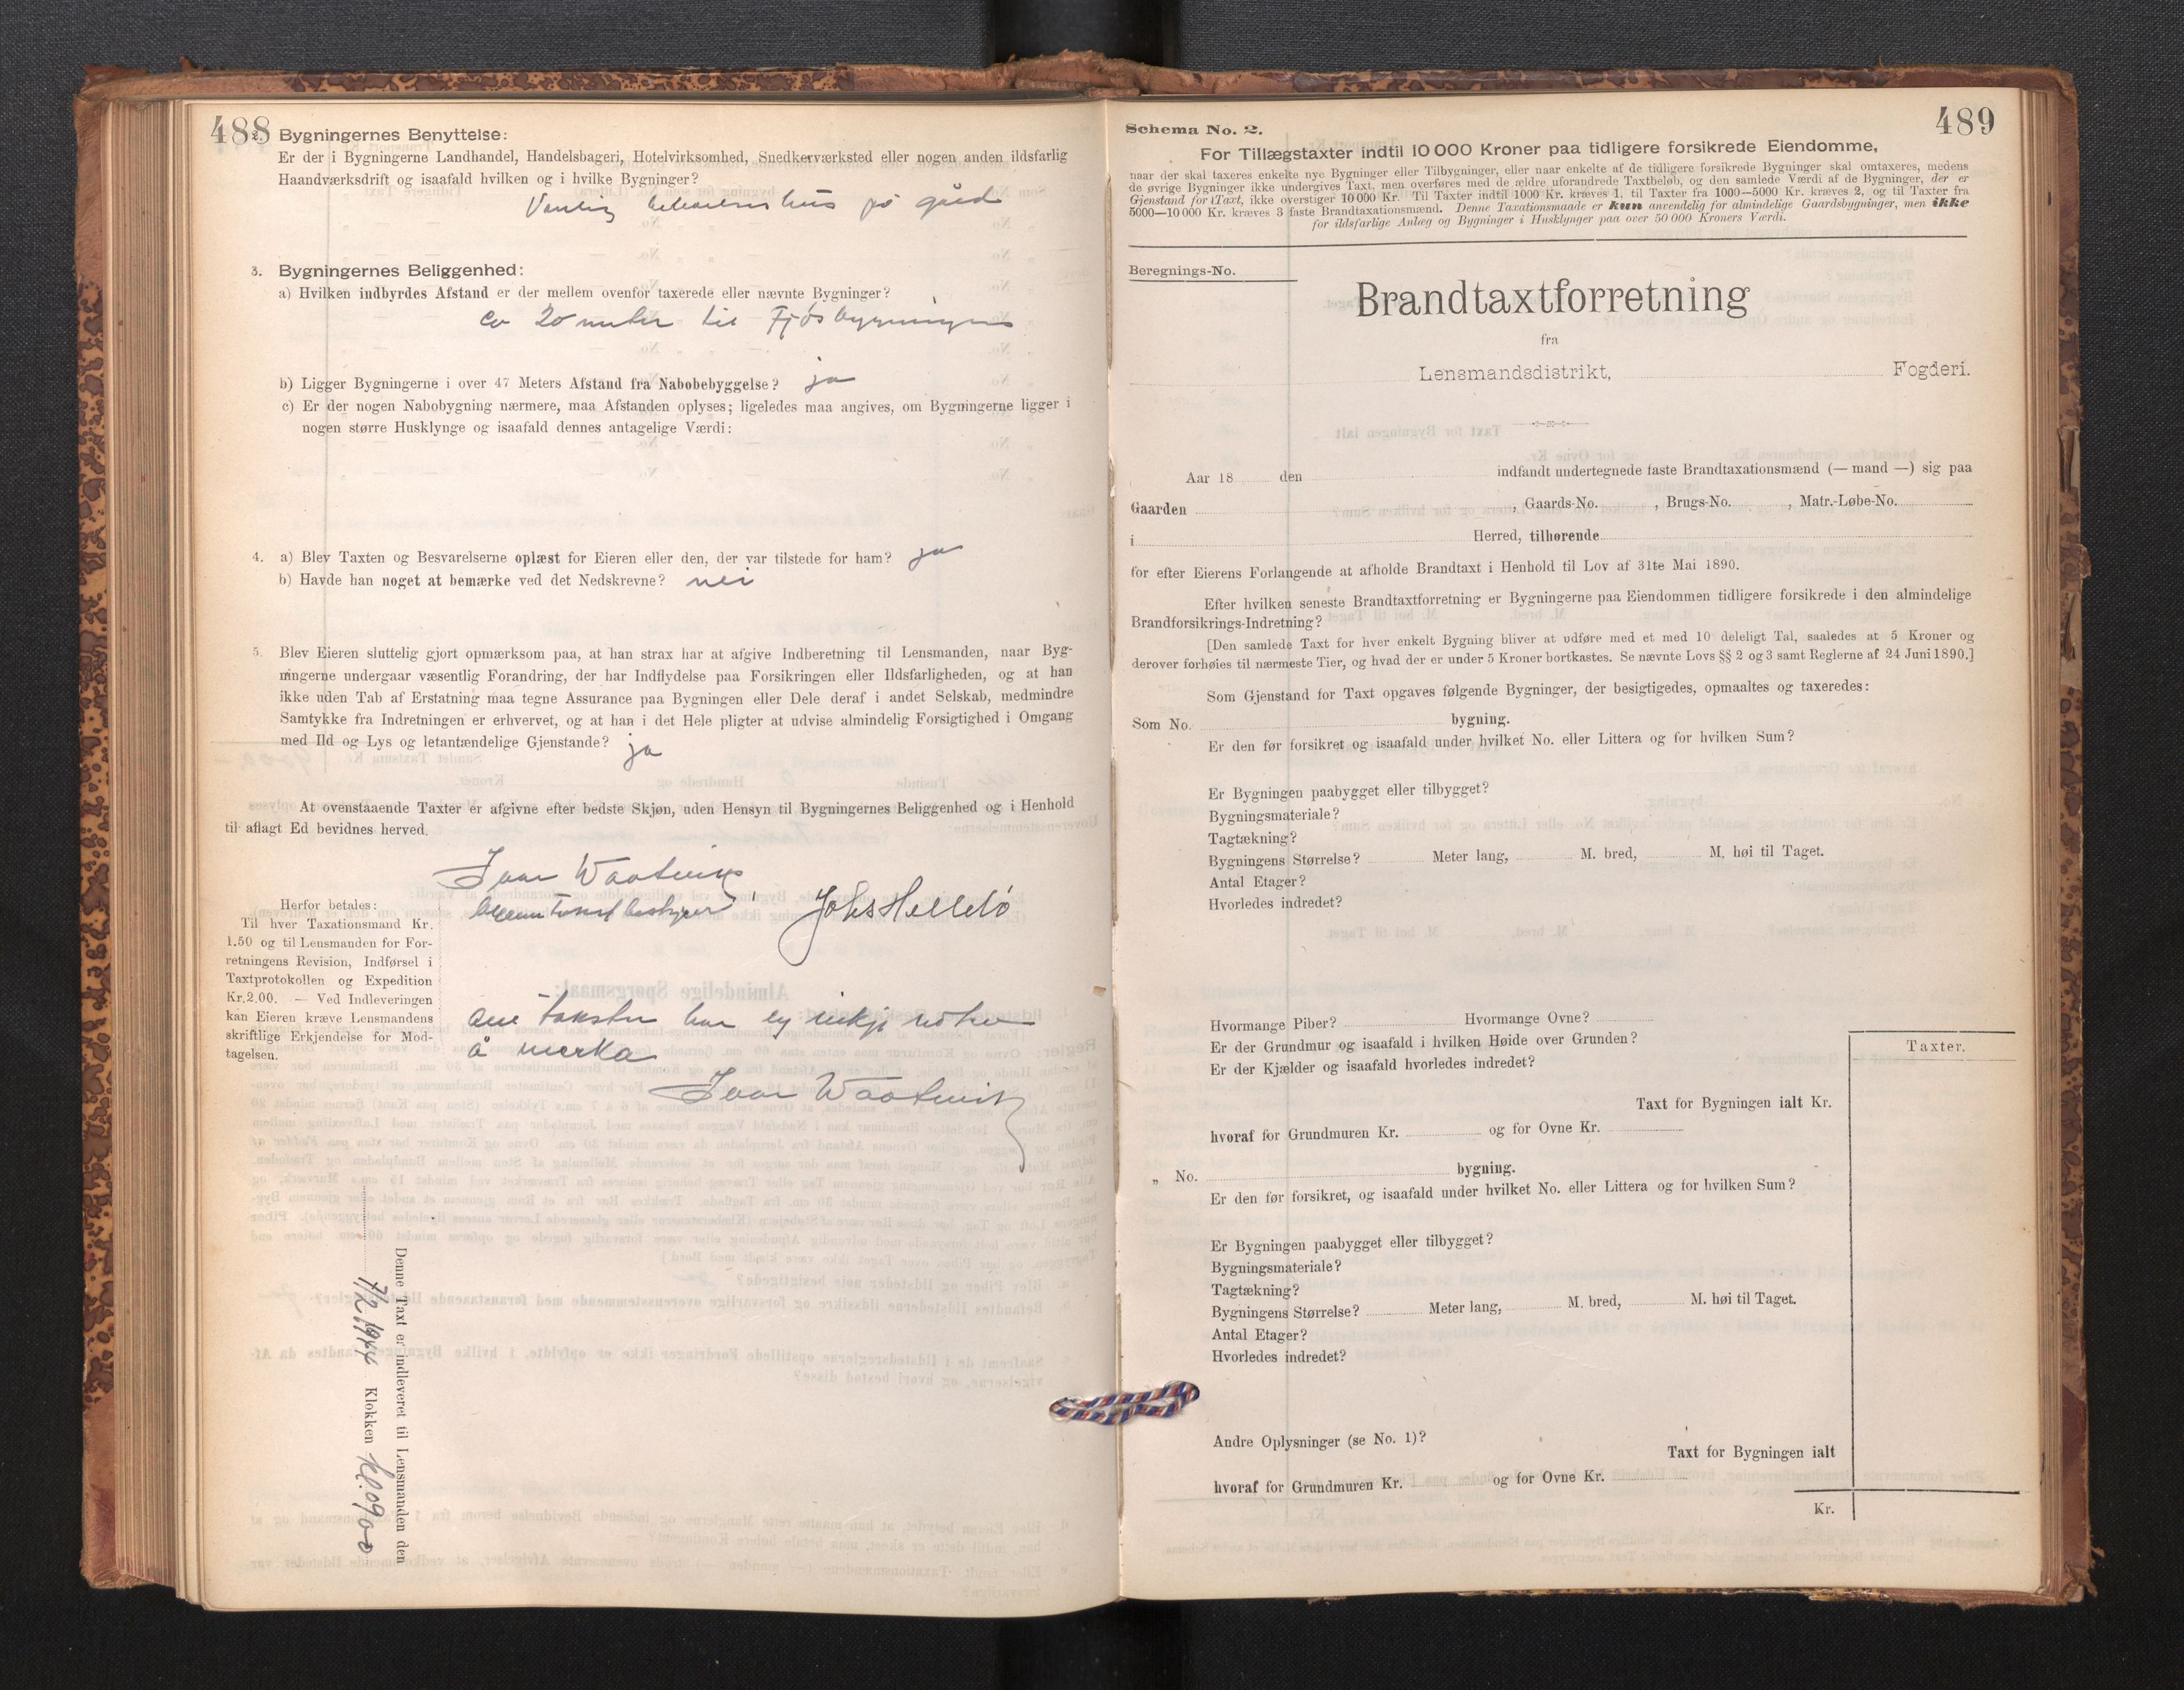 488
2. Bygningernes Benyttelse:
Er der i Bygningerne Landhandel, Handelsbageri, Hotelvirksomhed, Snedkerværksted eller nogen anden ildsfarlig
Haandværksdrift og isaafald hvilken og i hvilke Bygninger?
Vanlig bebuelseshus på gård
3. Bygningernes Beliggenhed:
a) Hvilken indbyrdes Afstand er der mellem ovenfor taxerede eller nævnte Bygninger?
Ca 20 meter til Fjøsbygningen
b) Ligger Bygningerne i over 47 Meters Afstand fra Nabobebyggelse? ja
c) Er der nogen Nabobygning nærmere, maa Afstanden oplyses; ligeledes maa angives, om Bygningerne ligger i
nogen større Husklynge og isaafald dennes antagelige Værdi:
4. a) Blev Taxten og Besvarelserne oplæst for Eieren eller den, der var tilstede for ham? ja
b) Havde han noget at bemærke ved det Nedskrevne? nei
5. Blev Eieren sluttelig gjort opmærksom paa, at han strax har at afgive Indberetning til Lensmanden, naar Byg-
ningerne undergaar væsentlig Forandring, der har Indflydelse paa Forsikringen eller Ildsfarligheden, og at han
ikke uden Tab af Erstatning maa tegne Assurance paa Bygningen eller Dele deraf i andet Selskab, medmindre
Samtykke fra Indretningen er erhvervet, og at han i det Hele pligter at udvise almindelig Forsigtighed i Omgang
med Ild og Lys og letantændelige Gjenstande? ja
At ovenstaaende Taxter er afgivne efter bedste Skjøn, uden Hensyn til Bygningernes Beliggenhed og i Henhold
til aflagt Ed bevidnes herved.
Ivar
Johs Helleló
Herfor betales:
Til hver Taxationsmand Kr.
1.50 og til Lensmanden for For-
retningens Revision, Indførsel i
Taxtprotokollen og Expedition
Kr. 2.00. — Ved Indleveringen
kan Eieren kræve Lensmandens
skriftlige Erkjendelse for Mod-
tagelsen.
taksten har eg inkje
å merka
Ivar
Denne Taxt er indleveret til Lensmanden den
7/2 1944 Klokken kl. 0900
489
Schema No. 2.
For Tillægstaxter indtil 10 000 Kroner paa tidligere forsikrede Eiendomme,
naar der skal taxeres enkelte nye Bygninger eller Tilbygninger, eller naar enkelte af de tidligere forsikrede Bygninger skal omtaxeres, medens
de øvrige Bygninger ikke undergives Taxt, men overføres med de ældre uforandrede Taxtbeløb, og den samlede Værdi af de Bygninger, der er
Gjenstand for Taxt, ikke overstiger 10 000 Kr. Til Taxter indtil 1000 Kr. kræves 1, til Taxter fra 1000—5000 Kr. kræves 2, og til Taxter fra
5000—10 000 Kr. kræves 3 faste Brandtaxationsmænd. Denne Taxationsmaade er kun anvendelig for almindelige Gaardsbygninger, men ikke
for ildsfarlige Anlæg og Bygninger i Husklynger paa over 50 000 Kroners Værdi.
Beregnings-No.
Brandtaxtforretning
fra
Lensmandsdistrikt, Fogderi.
Aar 18 den indfandt undertegnede faste Brandtaxationsmænd (— mand —) sig paa
Gaarden , Gaards-No. , Brugs-No. , Matr.-Løbe-No.
i Herred, tilhørende
for efter Eierens Forlangende at afholde Brandtaxt i Henhold til Lov af 31te Mai 1890.
Efter hvilken seneste Brandtaxtforretning er Bygningerne paa Eiendommen tidligere forsikrede i den almindelige
Brandforsikrings-Indretning?
[Den samlede Taxt for hver enkelt Bygning bliver at udføre med et med 10 deleligt Tal, saaledes at 5 Kroner og
derover forhøies til nærmeste Tier, og hvad der er under 5 Kroner bortkastes. Se nævnte Lovs §§ 2 og 3 samt Reglerne af 24 Juni 1890.]
Som Gjenstand for Taxt opgaves følgende Bygninger, der besigtigedes, opmaaltes og taxeredes:
Som No. bygning.
Er den før forsikret og isaafald under hvilket No. eller Littera og for hvilken Sum?
Er Bygningen paabygget eller tilbygget?
Bygningsmateriale?
Tagtækning?
Bygningens Størrelse? Meter lang, M. bred, M. høi til Taget.
Antal Etager?
Hvorledes indredet?
Hvormange Piber? Hvormange Ovne?
Er der Grundmur og isaafald i hvilken Høide over Grunden?
Er der Kjælder og isaafald hvorledes indredet?
Taxter.
Taxt for Bygningen ialt Kr.
hvoraf for Grundmuren Kr. og for Ovne Kr.
„ No. bygning.
Er den før forsikret, og isaafald under hvilket No. eller Littera og for hvilken Sum?
Er Bygningen paabygget eller tilbygget?
Bygningsmateriale?
Tagtækning?
Bygningens Størrelse? Meter lang, M. bred, M. høi til Taget.
Antal Etager?
Hvorledes indredet?
Andre Oplysninger (se No. 1)?
Taxt for Bygningen ialt
hvoraf for Grundmuren Kr. og for Ovne Kr.
Kr.